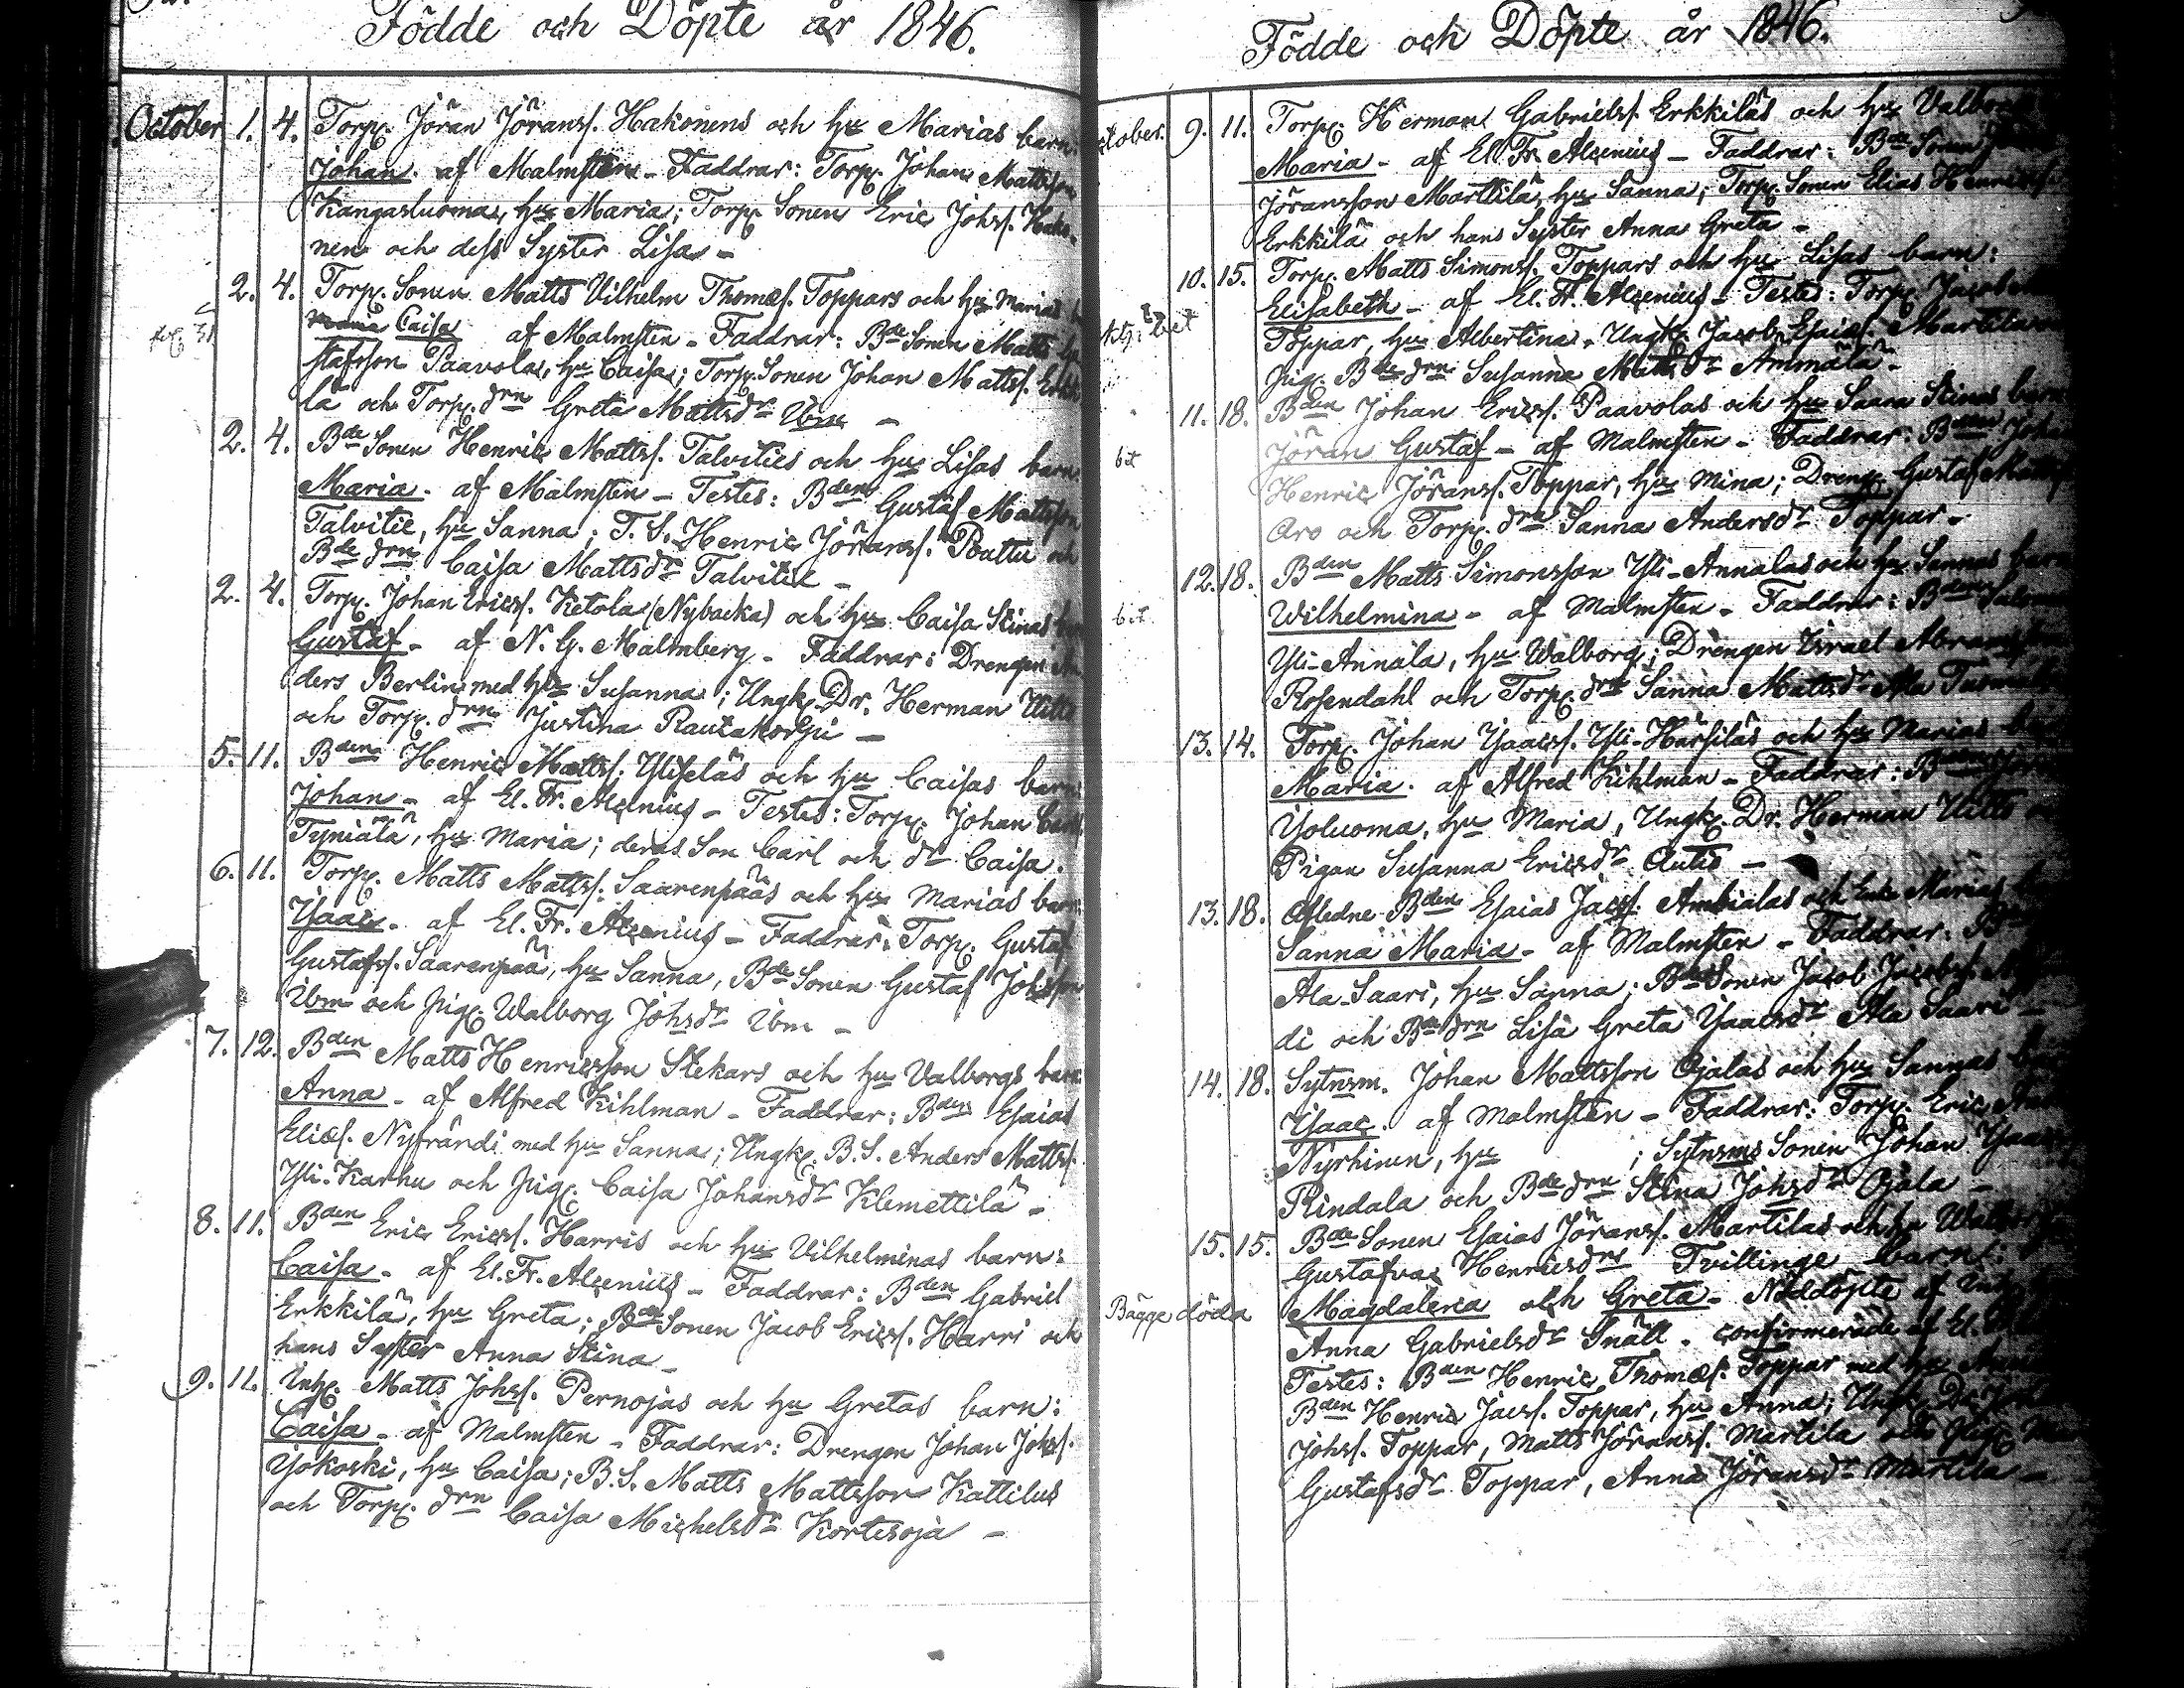 Födde och Döpte år 1846.
October 1. 4. Torp. Jöran Jöranss. Hakonens och hu Marias barn:
Johan. af Malmsten - Faddrar: Torp. Johan Mattsson
Kangasluoma, hu Maria; Torp. Sonen Eric Johss. Hako-
nen och dess Syster Lisa -
2. 4. Torp. Sonen Matts Vilhelm Thomæs. Toppars och hu Marias
Caisa af Malmsten - Faddrar: Bde Sonen Matts Gu
stafsson Paavola, hu Caisa; Torp. Sonen Johan Mattss. Erkki
lä och Torp. drn Greta Mattsdr Ibm -
2. 4. Bde Sonen Henric Mattss. Talvities och hu Lisas barn
Maria. af Malmsten - Testes: Bden Gustaf Mattsson
Talvitie, hu Sanna; T. S. Henric Jöranss. Pouttu och
Bde drn Caisa Mattsdr Talvitie -
2. 4. Torp. Johan Ericss. Ketola (Nybacka) och hu Caisa Stinas
Gustaf - af N. G. Malmberg - Faddrar: Drengen An
ders Berlin med hu Susanna; Ungk. Dr. Herman Uitto
och Torp. drn Justina Rautakorpi -
5. 11. Bden Henric Mattss. Yliseläs och hu Caisas barn
Johan - af El. Fr. Alcenius - Testes: Torp. Johan
Tyniälä, hu Maria; deras Son Carl och dr Caisa.
6. 11. Torp. Matts Mattss. Saarenpääs och hu Marias barn
Isaac. af El. Fr. Alcenius - Faddrar: Torp. Gustaf
Gustafss. Saarenpää, hu Sanna, Bde Sonen Gustaf Johsson
Ibm och pig. Walborg Johsdr Ibm -
7. 12. Bden Matts Henricsson Stekars och hu Valborgs barn
Anna - af Alfred Kihlman - Faddrar: Bden Esaias
Eliæs. Nyfrändi med hu Sanna; Ungk. B. S. Anders Mattss.
Yli-Karhu och pig. Caisa Johansdr Klemettilä -
8. 11. Bden Eric Ericss. Harris och hu Vilhelminas barn:
Caisa - af El. Fr. Alcenius - Faddrar: Bden Gabriel
Erkkilä, hu Greta; Bde Sonen Jacob Ericss. Harri och
hans Syster Anna Stina -
9. 11. Inh. Matts Johss. Pernojas och hu Gretas barn:
Caisa - af Malmsten - Faddrar: Drengen Johan Johss.
Yokoski, hu Caisa; B. S. Matts Mattsson Kattilus
och Torp. drn Caisa Michelsdr Kortesoja -
Födde och Döpte år 1846.
ctober. 9. 11. Torp. Herman Gabrielss. Erkkiläs och hu Valborgs
Maria - af El. Fr. Alcenius - Faddrar: Bde Sonen
Jöransson Marttila, hu Sanna; Torp. Sonen Elias Henricss.
Erkkilä och hans Syster Anna Greta -
10. 15. Torp. Matts Simonss. Toppars och hu Lisas barn:
Elisabeth - af El. Fr. Alcenius - Testes: Torp. Jacob
Toppar, hu Albertina, Ungk. Jacob Esaiæs. Martila
pig. Bde drn Susanna Mattsdr Ammälä -
11. 18. Bden Johan Ericss. Paavolas och hu Saara Stinas barn
Jöran Gustaf - af Malmsten - Faddrar: Bden Johan
Henric Jöranss. Toppar, hu Mina; Dreng. Gustaf
Aro och Torp. drn Sanna Andersdr Toppar -
12. 18. Bden Matts Simonsson Yli-Annalas och hu Sannas barn
Wilhelmina - af Malmsten - Faddrar: Bden
Yli-Annala, hu Walborg; Drengen Israel Abramsson
Rosendahl och Torp. drn Sanna Mattsdr Ala
13. 14. Torp. Johan Isacss. Yli-Härsiläs och hu Marias
Maria. af Alfred Kihlman - Faddrar: Bden
Yoluoma, hu Maria, Ungk. Dr. Herman Uitto
Pigan Susanna Ericsdr Autio -
13. 18. Afledne Bden Esaias Jacss. Ambialas och Enk. Marias
Sanna Maria - af Malmsten - Faddrar:
Ala-Saari, hu Sanna; Bde Sonen Jacob Jacobss.
di och Bde drn Lisa Greta Isaacsdr Ala Saari
14. 18. Sytnsm. Johan Mattsson Ojalas och hu Sannas
Isaac. af Malmsten - Faddrar: Torp. Eric
Nyrhinen, hu ; Sytnsms Sonen Johan
Rindala och Bde drn Stina Johsdr Ojala -
15. 15. Bde Sonen Esaias Jöranss. Martilas och hu
Gustafva Henricsdrs Tvillinge barn:
Bägge döda Magdalena och Greta - Nöddöpta af
Anna Gabrielsdr Snäll. confirmerade af El.
Testes: Bden Henric Thomæs. Toppar med hu Anna
Bden Henric Jacss. Toppar, hu Anna; Ungk. Dr.
Johss. Toppar, Matts Jöranss. Martila och pig.
Gustafsdr Toppar, Anna Jöransdr Martila -